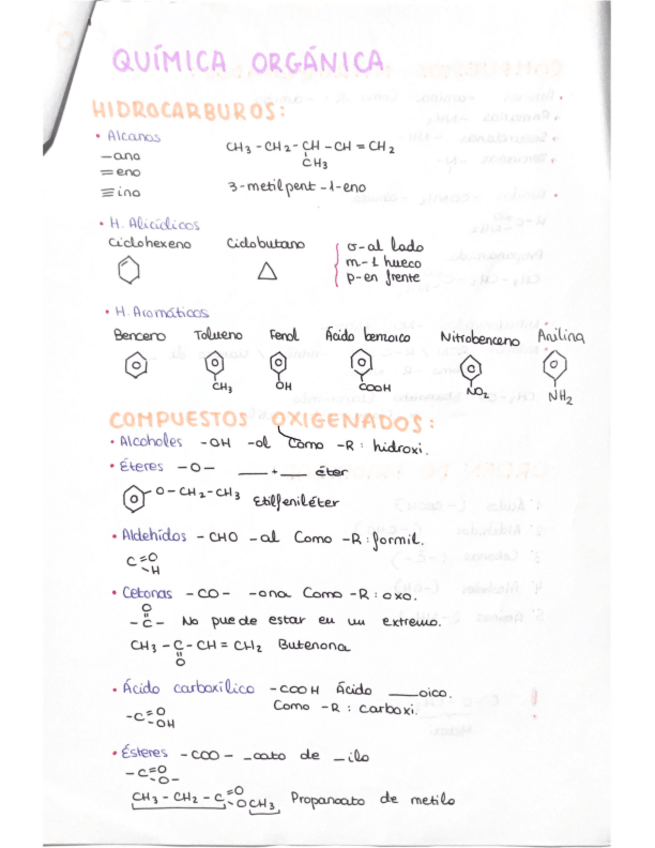 QUÍMICA ORGÁNICA
HIDROCARBUROS:
• Alcanos
—ano
= eno
≡ ino
CH3 - CH2 - CH - CH = CH2
CH3
3-metilpent-1-eno
• H. Alicíclicos
Ciclohexeno Ciclobutano
o-al lado
m-1 hueco
p-en frente
• H. Aromáticos
Benceno Tolueno Fenol Ácido benzoico Nitrobenceno Anilina
CH3 OH COOH NO2 NH2
COMPUESTOS OXIGENADOS:
• Alcoholes -OH -ol Como -R: hidroxi.
• Éteres -O- ___ + ___ éter
O-CH2-CH3 Etilfeniléter
• Aldehídos - CHO -al Como -R: formil.
C=O
-H
• Cetonas -CO- -ona Como -R: oxo.
O
- C - No puede estar en un extremo.
CH3 - C - CH = CH2 Butenona
O
• Ácido carboxílico -COOH Ácido ___oico.
Como -R: carboxi.
-C=O
-OH
• Ésteres -COO- _oato de _ilo
-C=O
-O-
CH3 - CH2 - C=O
-OCH3 Propanoato de metilo